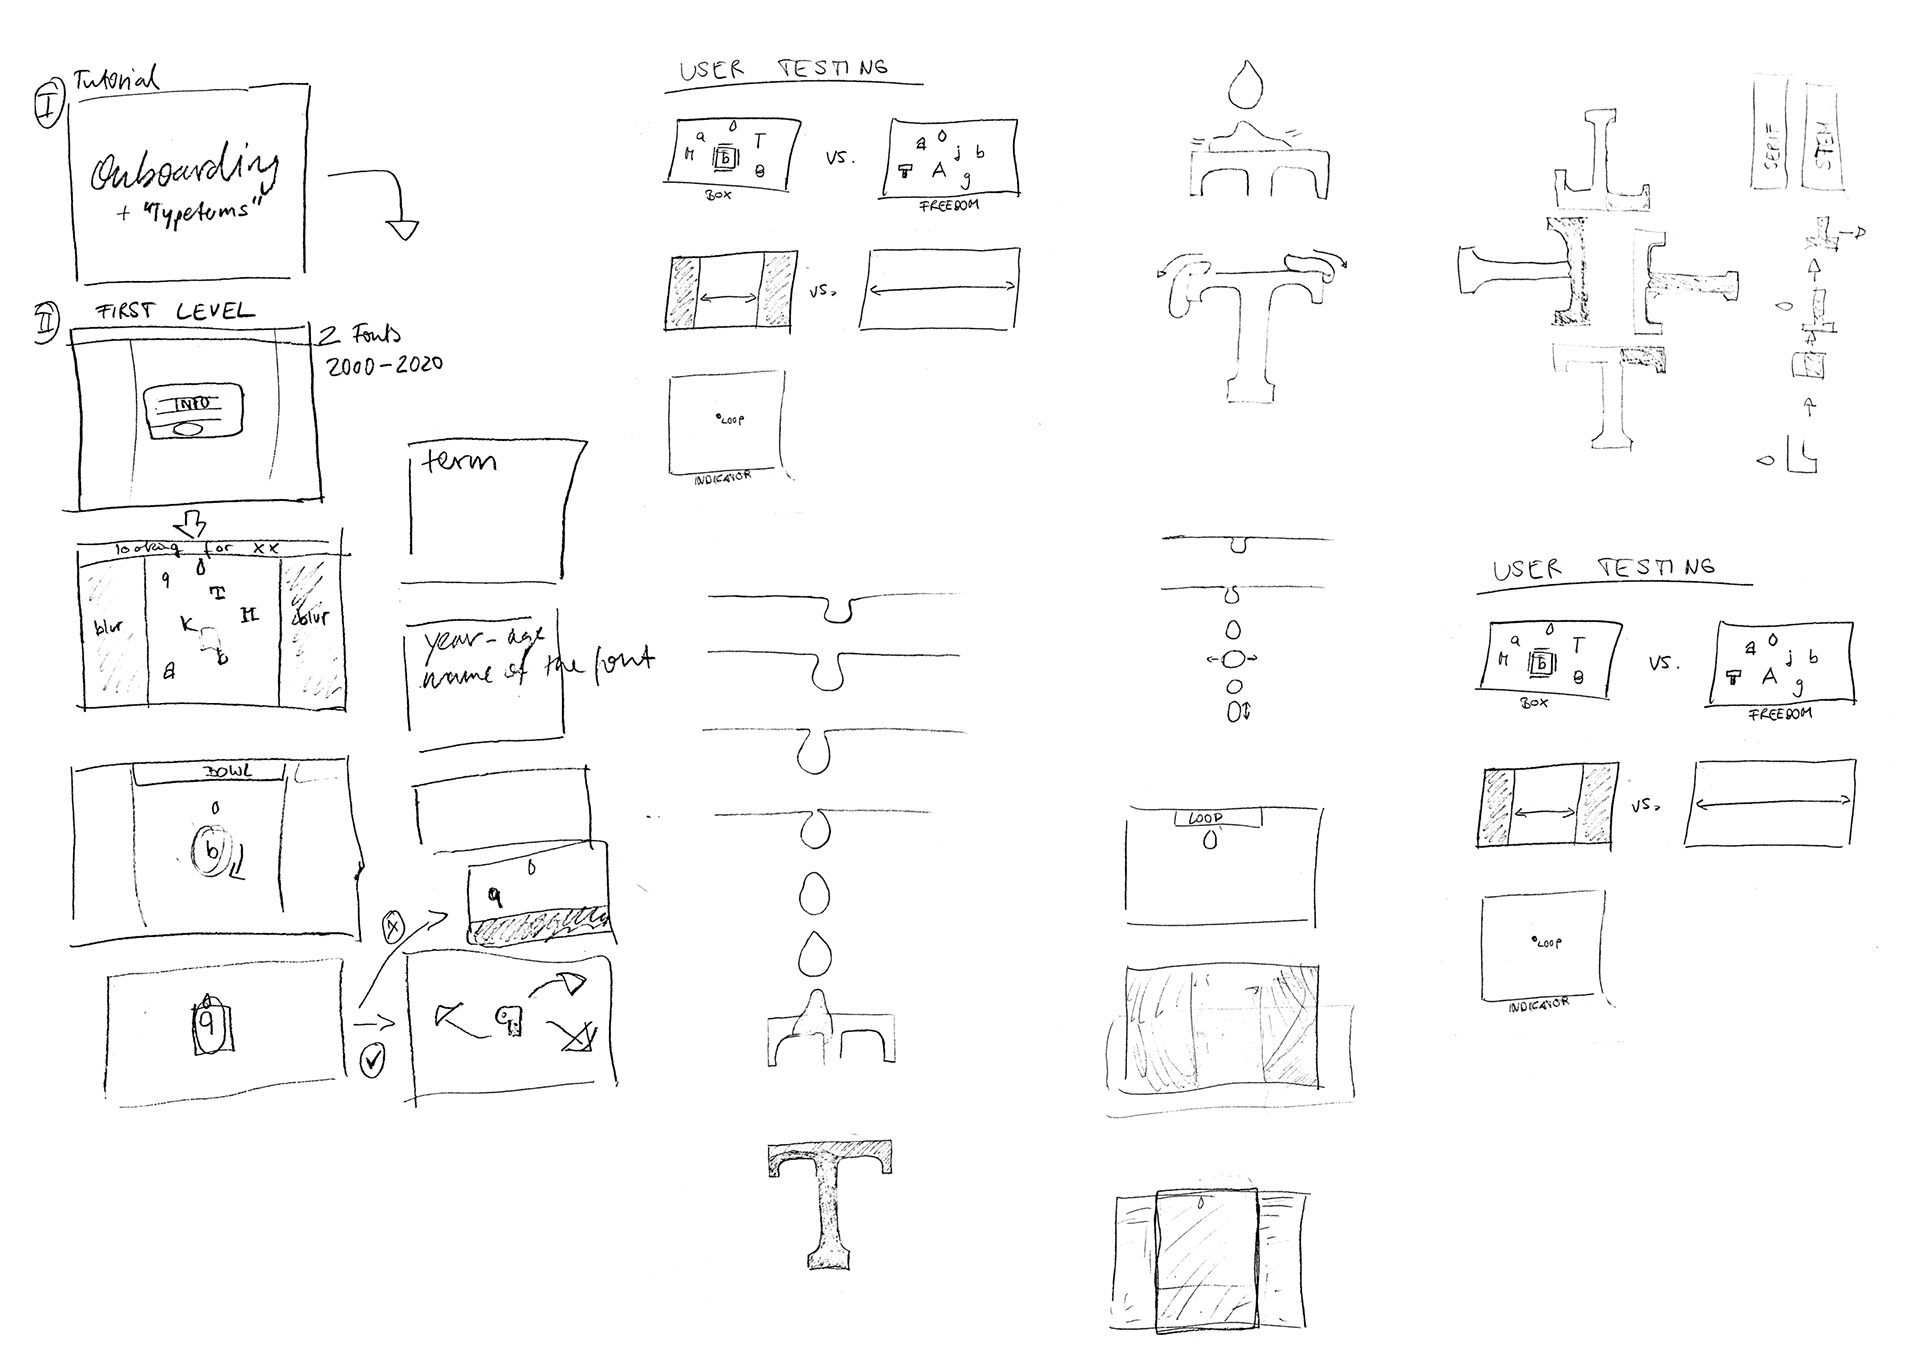 I Tutorial
Onboarding
+ "Typeterms"
II FIRST LEVEL
2 Fonts
2000-2020
INFO
looking for xx
a
T
H
K
b
a
blur
blur
BOWL
b
q
term
year-age
name of the font
q
q
USER TESTING
a T
M b B
BOX
vs.
a j b
T A g
FREEDOM
vs.
LOOP
INDICATOR
LOOP
SERIF
STEM
USER TESTING
a T
M b B
BOX
vs.
a j b
T A g
FREEDOM
vs.
LOOP
INDICATOR